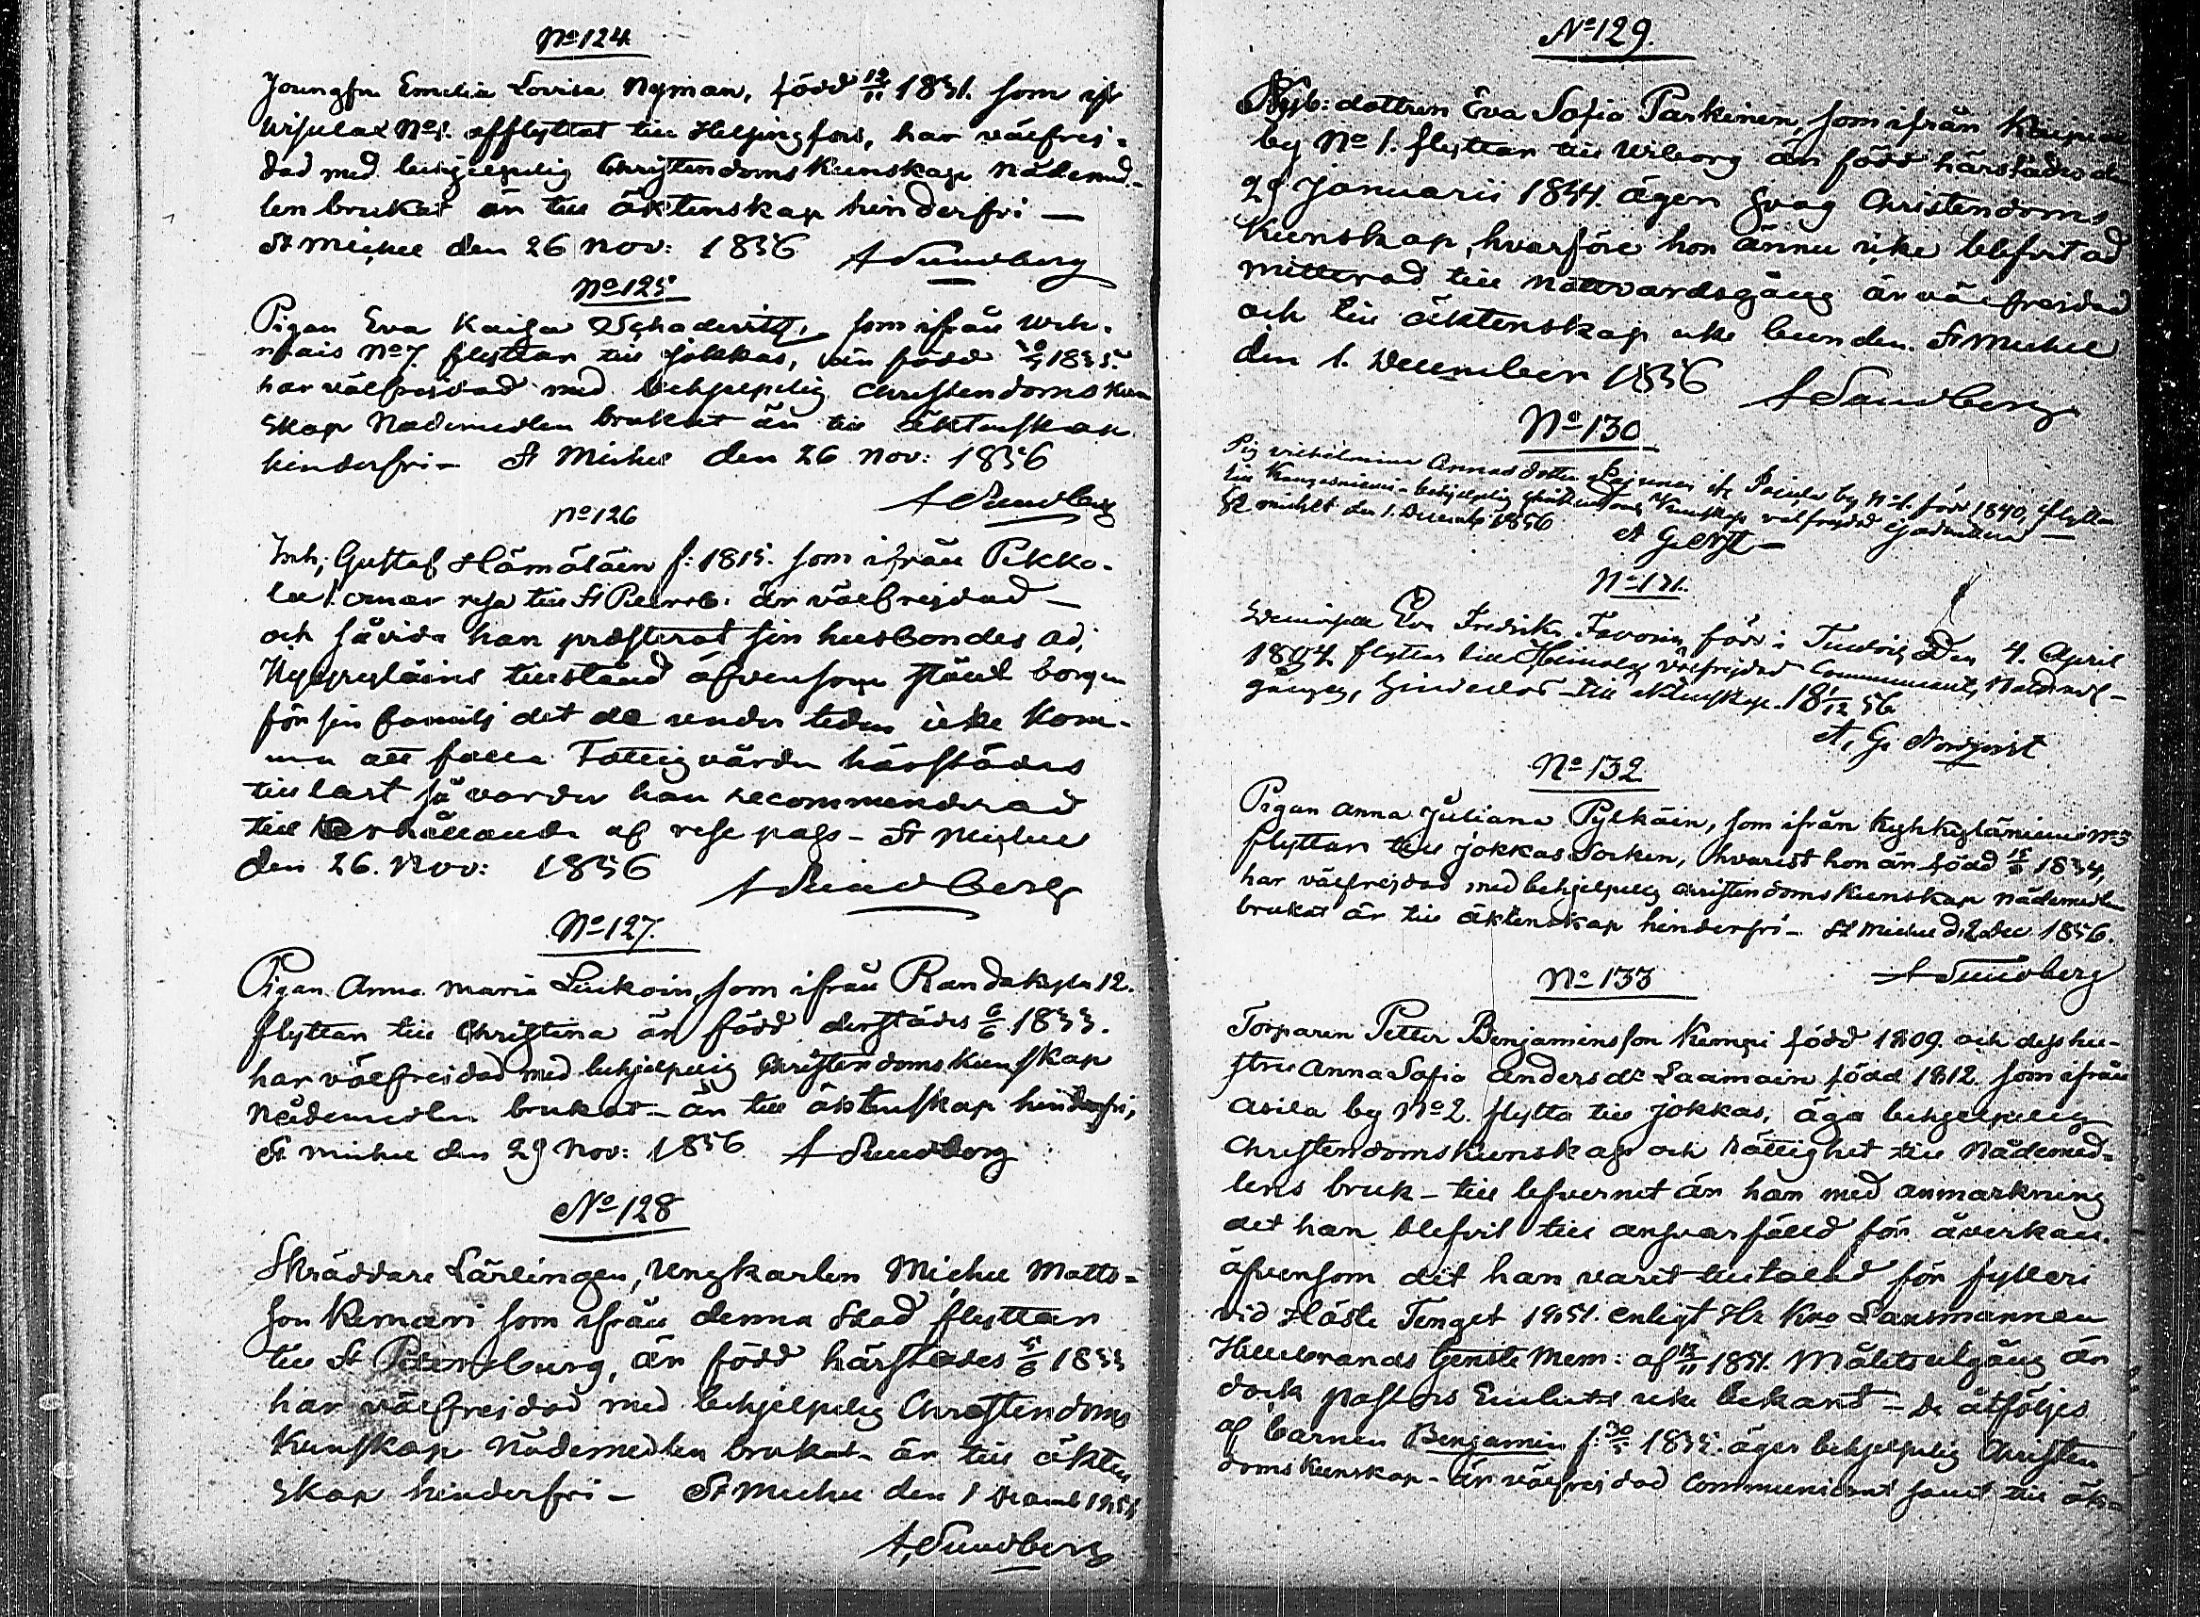 No 124
Joungfru Emelia Lovisa Nyman, född 19/11 1831. som ifr
Wisulax No 1. afflyttat till Helsingfors, har välfrej-
dad med behjelpelig Christendoms Kunskap nådemed-
len brukat är till äktenskap hinderfri —
St Michel den 26 Nov: 1856 A Sundberg
No 125
Pigan Eva Kaisa Schadewitz, som ifrån
No 7. flyttar till Jokkas, är född 1835.
har välfrejdad med behjelpelig Christendoms Kun
skap Nådemedlen brukat är till äktenskap
hinderfri — St Michel den 26 Nov: 1856
A Sundberg
No 126
Inh; Gustaf Hämäläin f: 1815. som ifrån Pekko-
la 1. ärnar resa till St Petersb: är välfrejdad —
och såvida han præsterat sin husbondes Ad,
tillstånd äfvensom ställt borgen
för sin familj det de under tiden icke kom-
ma att falla Fattigvården härstädes
till last så varder han recommenderad
till erhållande af rese pass — St Michel
den 26. Nov: 1856 A Sundberg
No 127.
Pigan Anna Maria Liukoin, som ifrån Randakylä 12.
flyttar till Christina är född derstädes 6/6 1833.
har välfrejdad med behjelpelig Christendoms Kunskap
nådemedlen brukat — är till äktenskap hinderfri,
St Michel den 29 Nov: 1856 A Sundberg
No 128
Skräddare Lärlingen, Ungkarlen Michel Matts-
son Kemäri som ifrån denna Stad flyttar
till St Petersburg, är född härstädes 5/6 1833
har välfrejdad med behjelpelig Christendoms
Kunskap Nådemedlen brukat — är till äkten
skap hinderfri — St Michel den 1 Decemb 1856
A, Sundberg
No 129.
dottren Eva Sofia Parkinen, som ifrån
by No 1. flyttar till Wiborg är född härstädes den
29 Januarii 1834. äger svag Christendoms
Kunskap, hvarföre hon ännu icke blefvit ad
mitterad till nattvardsgång är välfrejdad
och till äktenskap icke bunden. St Michel
den 1. December 1856 A Sundberg
No 130
Pig Vilhelmina Annas dotter fr by No 1. född 1840, flyttar
till Kangasniemi — behjelpelig Christendoms Kunskap välfrejdad
St Michel den 1. Decemb 1856
A G Nqst —
No 131.
Demoiselle Eva Fredrika Favorin född i den 4. April
1804 flyttar till Heinola, Välfrejdad Communicant,
hinderlös till äktenskap. 18 1/12 56
A, G, Nordqvist
No 132
Pigan Anna Juliana Pylkäin, som ifrån Kyhkyläniemi No 3
flyttar till Jokkas Socken, hvarest hon är född 1834,
har välfrejdad med behjelpelig Christendoms Kunskap nådemedlen
brukat är till äktenskap hinderfri — St Michel d. 2 Dec 1856.
A Sundberg
No 133
Torparen Petter Benjaminsson Kempi född 1809. och dess hu-
stru Anna Sofia Anders dr Laamain född 1812. som ifrån
Asila by No 2. flytta till Jokkas, äga behjelpelig
Christendomskunskap och rättighet till Nådemed-
lens bruk — till lefvernet är han med anmärkning
det han blefvit till ansvar fälld för åverkan.
äfvensom det han varit tilltalad för fylleri
vid Höste Tinget 1851. enligt Hr Kro Länsmannen
Hillebrands Genste Mem: af 18/11 1851. Målets utgång är
dock pastors Embetet icke bekant — De åtföljes
af barnen Benjamin f: 30/5 1835. äger behjelpelig Christen
doms Kunskap — är välfrejdad communicant samt till äk-